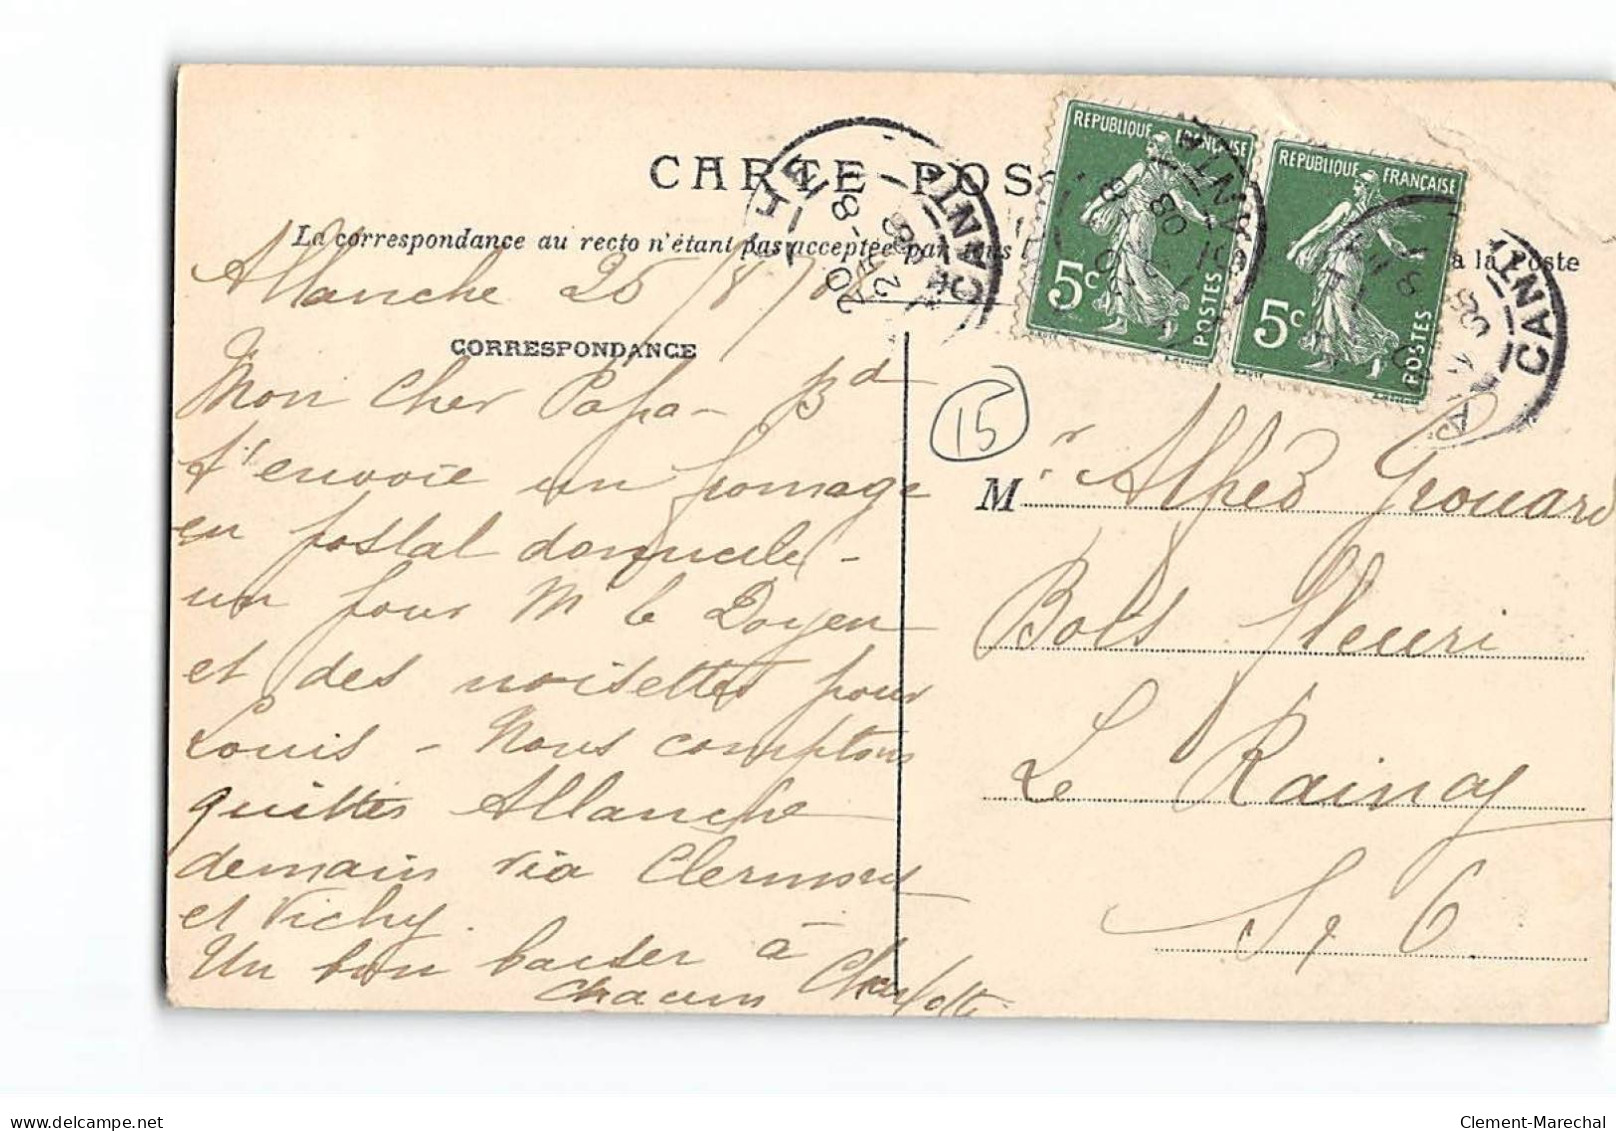 CARTE POS
La correspondance au recto n'étant pas acceptée par
à la Poste
CORRESPONDANCE
REPUBLIQUE FRANÇAISE
5c POSTES
REPUBLIQUE FRANÇAISE
5c POSTES
CANTAL
CANTAL
CANT
15
Allanche 25/8/08
Mon cher Papa - Bd
t'envoie un fromage
en postal domicile -
un pour M le Doyen
et des noisettes pour
Louis - Nous comptons
quitter Allanche
demain via Clermont
et Vichy.
Un bon baiser à
chacun Charlotte
Mr Alfred Grouard
Bois fleuri
Le Raincy
S et O
delcampe.net
Clement-Marechal